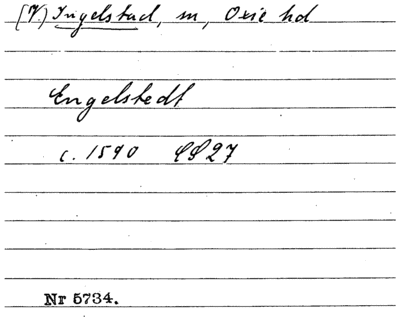 (V) Ingelstad, m, Oxie hd
Engelstedt
c. 1590 LS 27
Nr 5734.